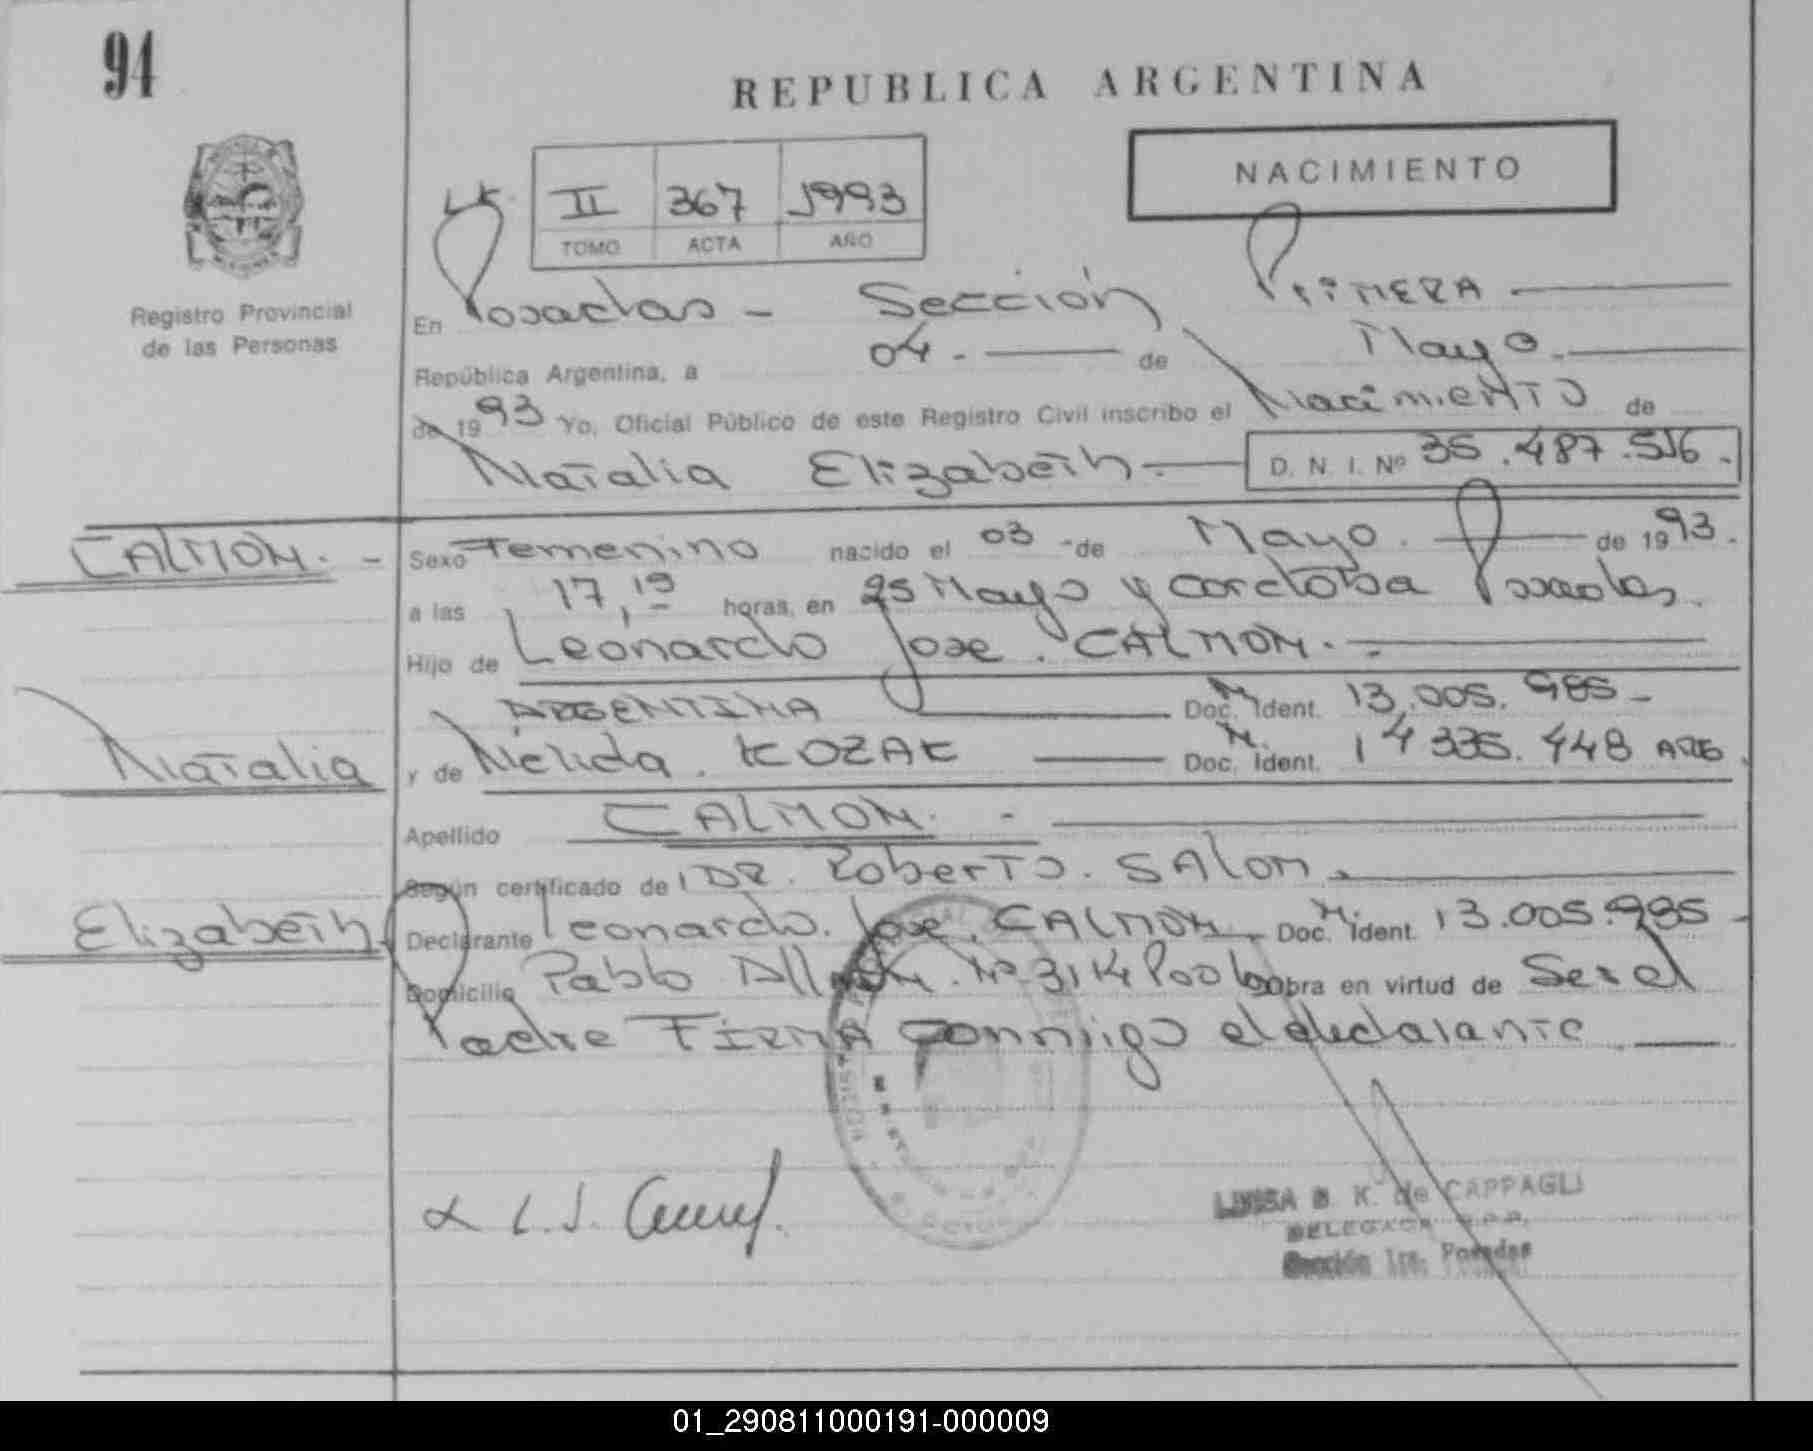 94
REPUBLICA ARGENTINA
NACIMIENTO
II 367 1993
TOMO ACTA AÑO
Registro Provincial
de las Personas
En Posadas - Sección PRIMERA
República Argentina, a 04.- de Mayo.
de 1993 Yo, Oficial Público de este Registro Civil inscribo el Nacimiento de
Natalia Elizabeth.- D. N. I. Nº 35.487.516.
CALMON.-
Sexo Femenino nacido el 03 de Mayo. de 1993.
a las 17,15 horas, en 25 Mayo y cordoba Posadas.
Hijo de Leonardo Jose. CALMON.-
ARGENTINA Doc. Ident. 13.005.985-
Natalia
y de Nélida. KOZAK Doc. Ident. 14335.448 ARG.
Apellido CALMON.-
Según certificado de DR. Roberto. SALOM.
Elizabeth.
Declarante Leonardo. Jose. CALMON. Doc. Ident. 13.005.985-
Domicilio Pablo Nº 3114 Obra en virtud de Ser el
Padre FIRMA conmigo el declarante
L.J.
LUISA B. K. de CAPPAGLI
DELEGADA R.P.P.
Sección 1ra. Posadas
01_290811000191-000009